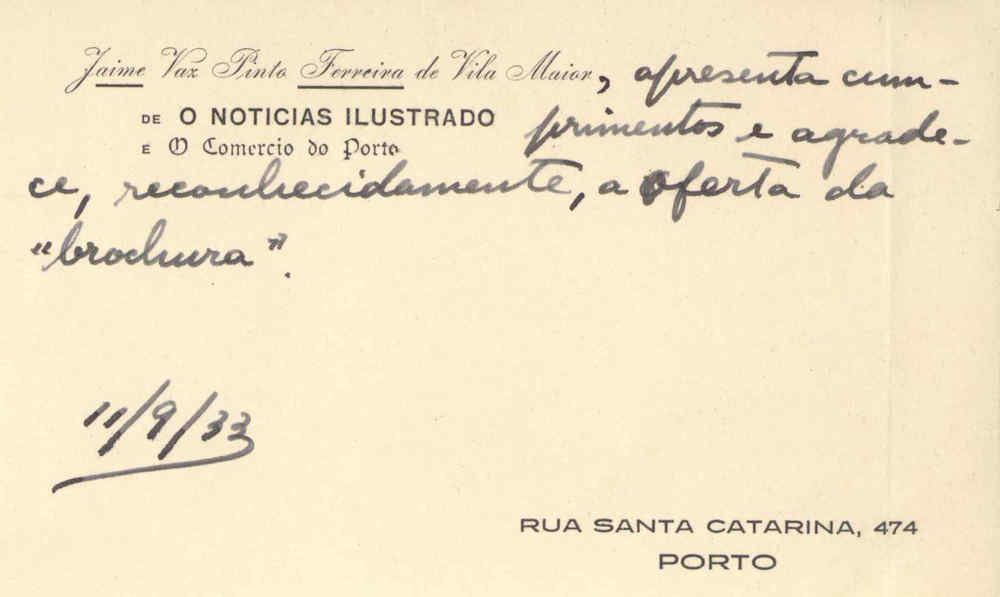 Jaime Vaz Pinto Ferreira de Vila Maior, apresenta cum-
DE O NOTICIAS ILUSTRADO primentos e agrade-
E O Comercio do Porto
ce, reconhecidamente, a oferta da
"brochura".
11/9/33
RUA SANTA CATARINA, 474
PORTO